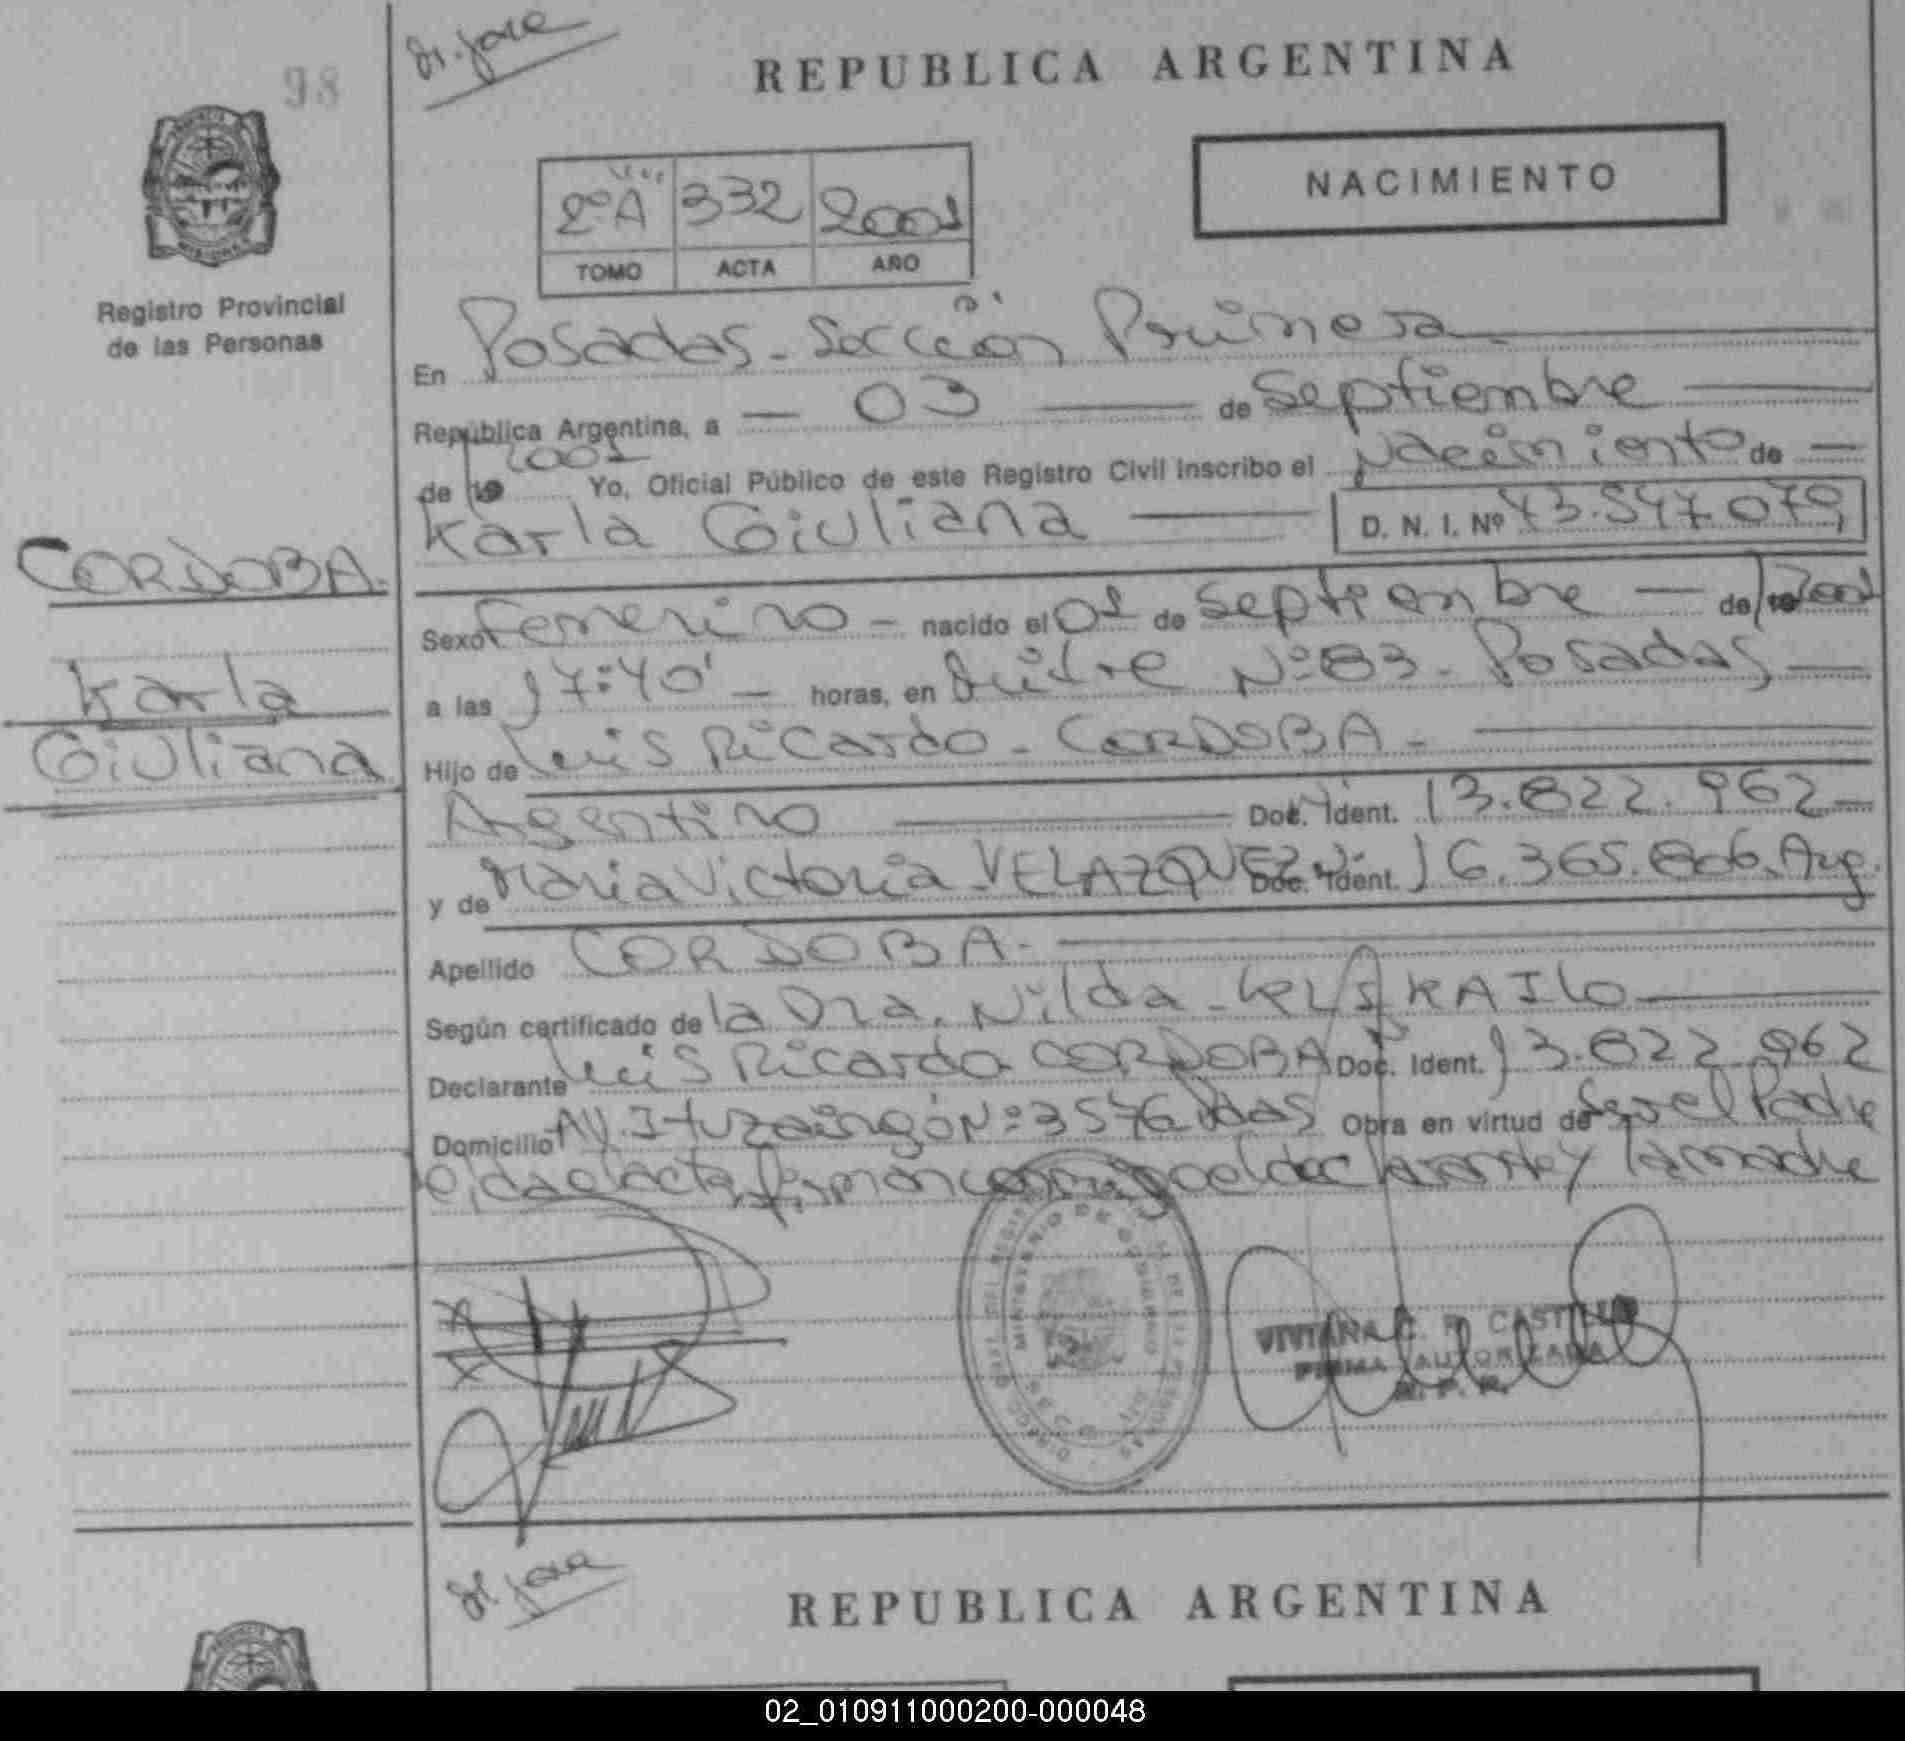 98
REPUBLICA ARGENTINA
NACIMIENTO
2º A 332 2001
TOMO ACTA AÑO
Registro Provincial
de las Personas
En Posadas - Sección Primera
República Argentina, a - 03 - de Septiembre
de 19 2001 Yo, Oficial Público de este Registro Civil inscribo el Nacimiento de -
Karla Giuliana - D. N. I. Nº 43.547.079
CORDOBA.
Karla
Giuliana
Sexo Femenino - nacido el 01 de Septiembre - de 19 2001
a las 17:40' - horas, en Mitre Nº: 83 - Posadas -
Hijo de Luis Ricardo - CORDOBA -
Argentino - Doc. Ident. 13.822.962 -
y de Maria Victoria - VELAZQUEZ Doc. Ident. 16.365.806. Arg.
Apellido CORDOBA -
Según certificado de la Dra. Nilda -
Declarante Luis Ricardo CORDOBA Doc. Ident. 13.822.962
Domicilio Av. Ituzaingó Nº: 3576 Pdas Obra en virtud de Ser el Padre
leida el acta, firman conmigo el declarante y la madre
MINISTERIO DE GOBIERNO
VIVIANA C. R. CASTILLO
FIRMA AUTORIZADA
R. P. P.
REPUBLICA ARGENTINA
02_010911000200-000048